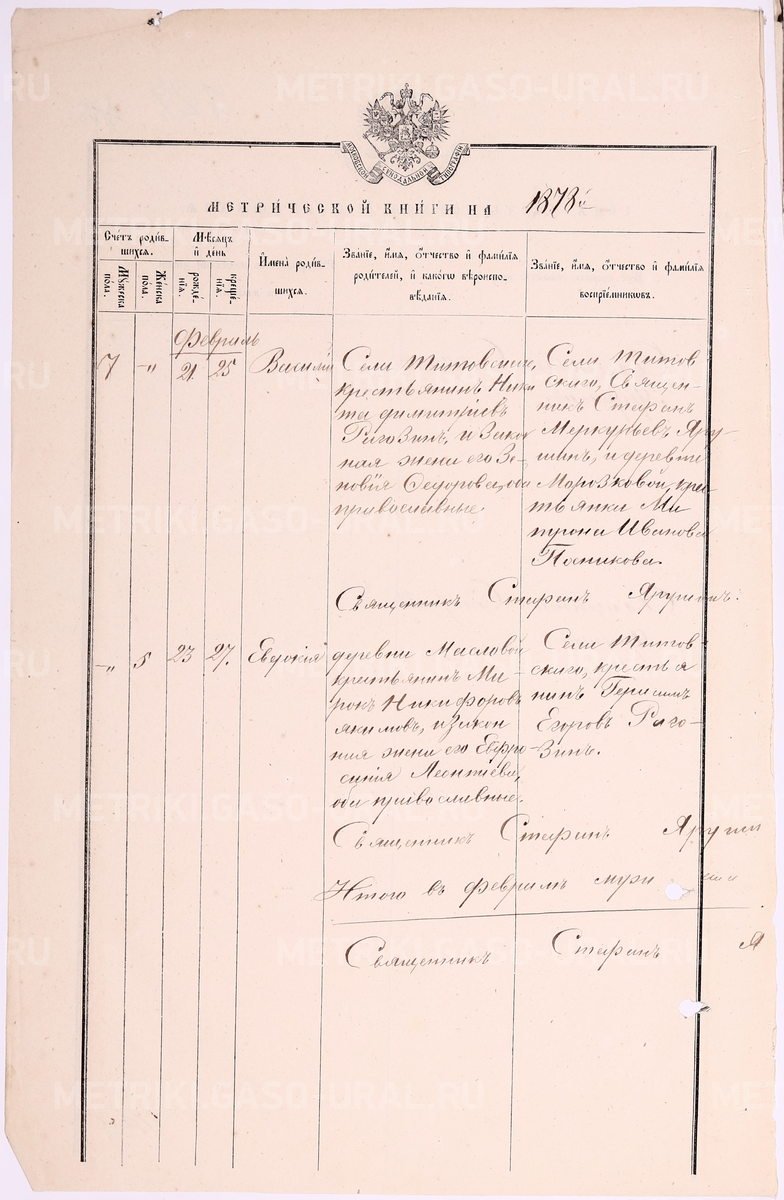 METRIKI.GASO-URAL.RU
МОСКОВСКОЙ СѴНОДАЛЬНОЙ ТИПОГРАФІИ
МЕТРИ́ЧЕСКОЙ КНИ́ГИ НА 1878й
Сче́тъ роди́в-
шихсѧ.
Мꙋ́жеска
пола.
Же́нска
пола.
Мѣ́сѧцъ
и҆ де́нь
рожде́-
нїѧ.
креще́-
нїѧ.
И҆мена̀ роди́в-
шихсѧ.
Зва́нїе, и҆́мѧ, ѻ҆́тчество и҆ фамѝлїѧ
роди́телей, и҆ како́гѡ вѣроиспо-
вѣ́данїѧ.
Зва́нїе, и҆́мѧ, ѻ҆́тчество и҆ фамѝлїѧ
воспрїе́мникѡвъ.
Февраль
7 " 21 25 Василій
Села Титовскаго,
крестьянинъ Ники
та Димитріевъ
Рагозинъ, и закон
ная жена его Зе-
новія Федорова, оба
православные.
Села Титов
скаго, Священ-
никъ Стефанъ
Меркурьевъ Яру
шинъ, и деревни
Морозковой, крес
тьянка Ма
трона Иванова
Пасникова.
Священникъ Стефанъ Ярушинъ.
" 5 23 27. Евдокія
деревни Масловой
крестьянинъ Ми-
ронъ Никифоровъ
Якимовъ, и закон
ная жена его Евфро
синія Леонтіева,
оба православные.
Села Титов-
скаго, крестья
нинъ Герасимъ
Егоровъ Раго-
зинъ.
Священникъ Стефанъ Яруши
Итого въ февралѣ
Священникъ Стефанъ Я